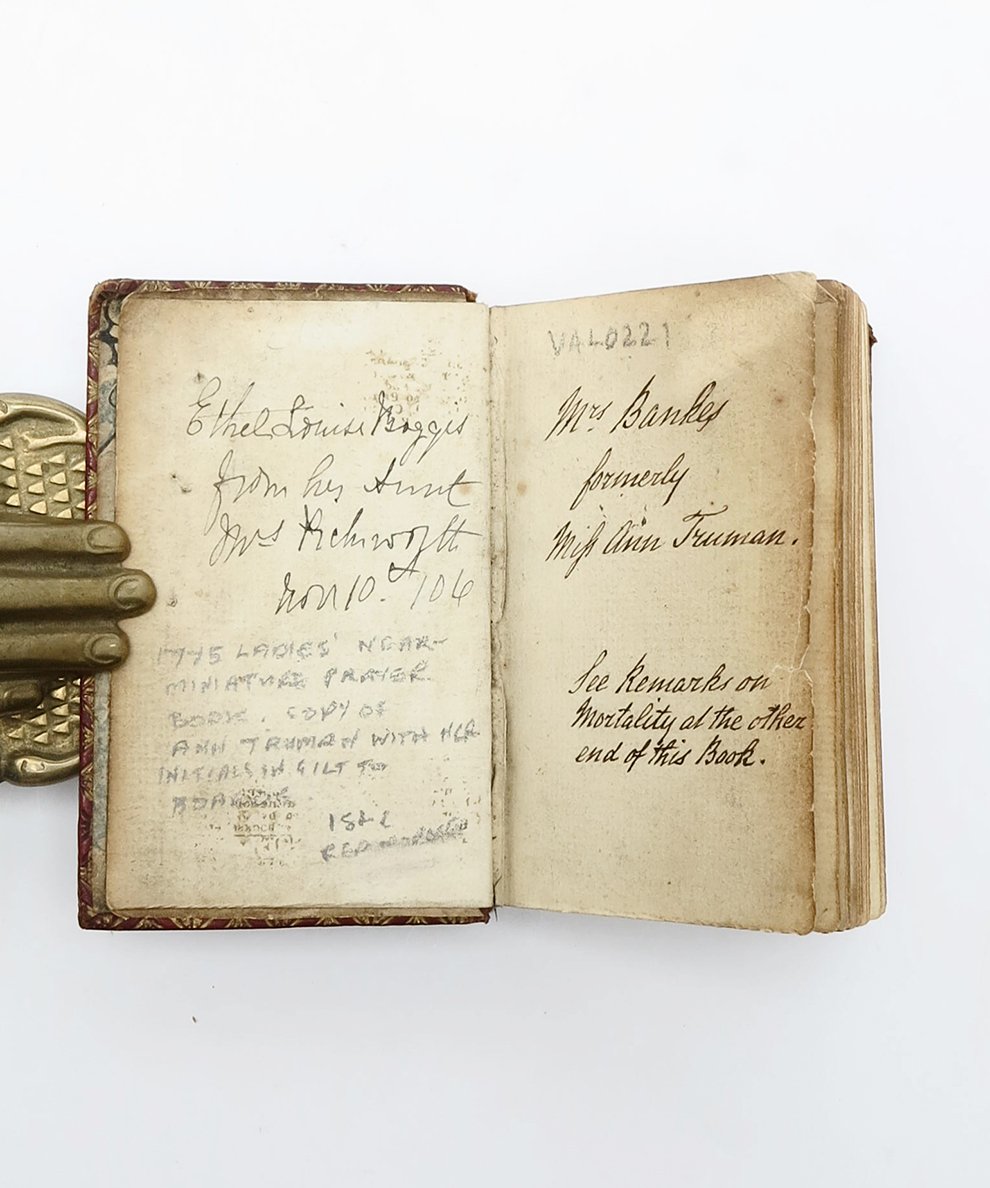 Ethel Louise Boggis
from her Aunt
Mrs
Nov 10th /06
1745 LADIES' NEAR-
MINIATURE PRAYER
BOOK. COPY OF
ANN TRUMAN WITH HER
INITIALS IN GILT TO
BOARDS
VAL0221
Mrs Bankes
formerly
Miſs Ann Truman.
See Remarks on
Mortality at the other
end of this Book.